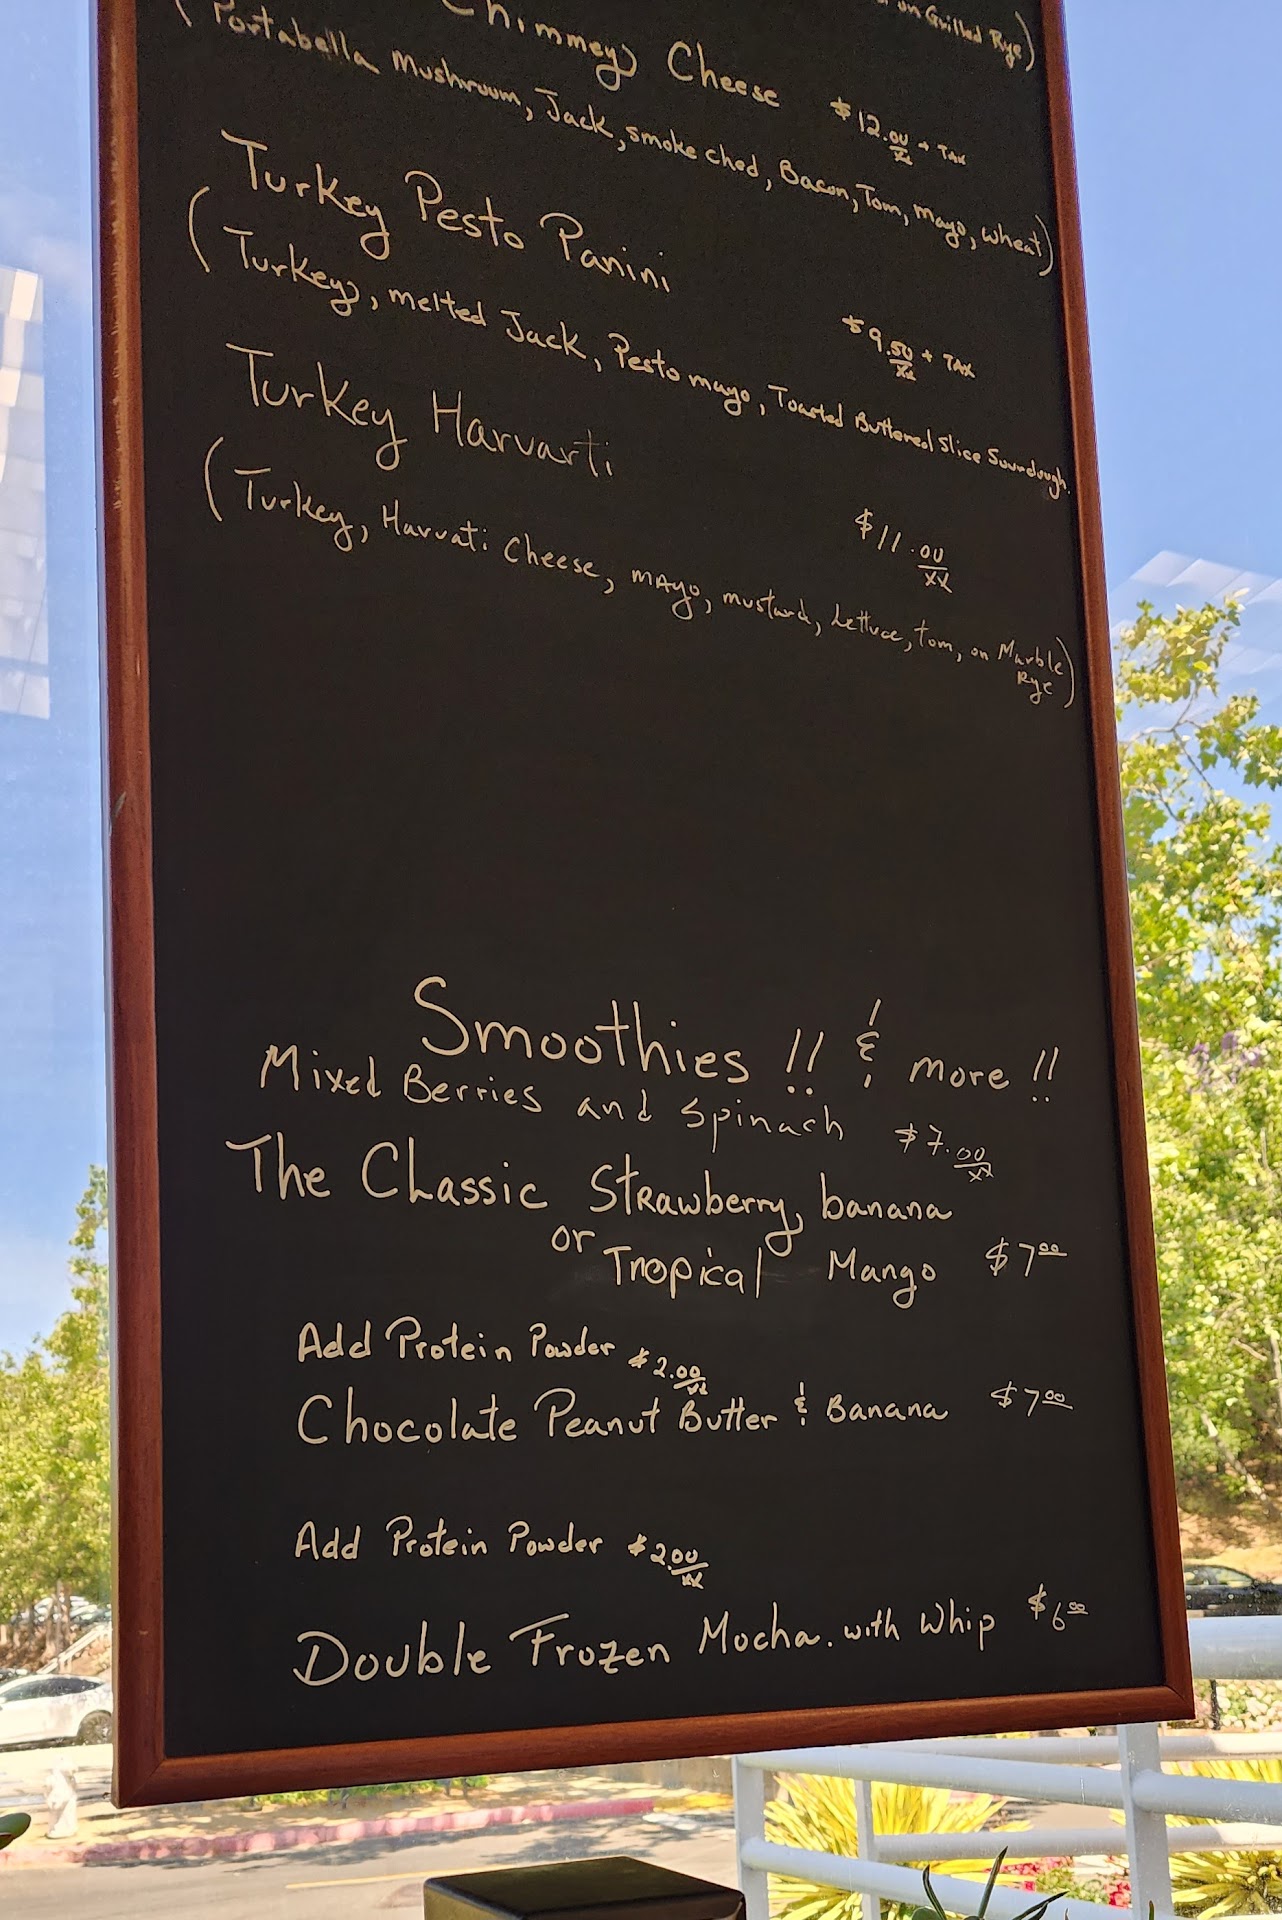 on Grilled Rye)
Chimmey Cheese $12.00/xx + TAX
(Portabella mushroom, Jack, smoke ched, Bacon, Tom, mayo, wheat)
Turkey Pesto Panini $9.50/xx + TAX
(Turkey, melted Jack, Pesto mayo, Toasted Buttered slice Sourdough.
Turkey Harvarti $11.00/xx
(Turkey, Harvati Cheese, mAyo, mustard, Lettuce, tom, on Marble
Rye)
Smoothies !! & more !!
Mixed Berries and Spinach $7.00/xx
The Classic Strawberry, banana
or Tropical Mango $7.00
Add Protein Powder $2.00/xx
Chocolate Peanut Butter & Banana $7.00
Add Protein Powder $2.00/xx
Double Frozen Mocha. with Whip $6.00